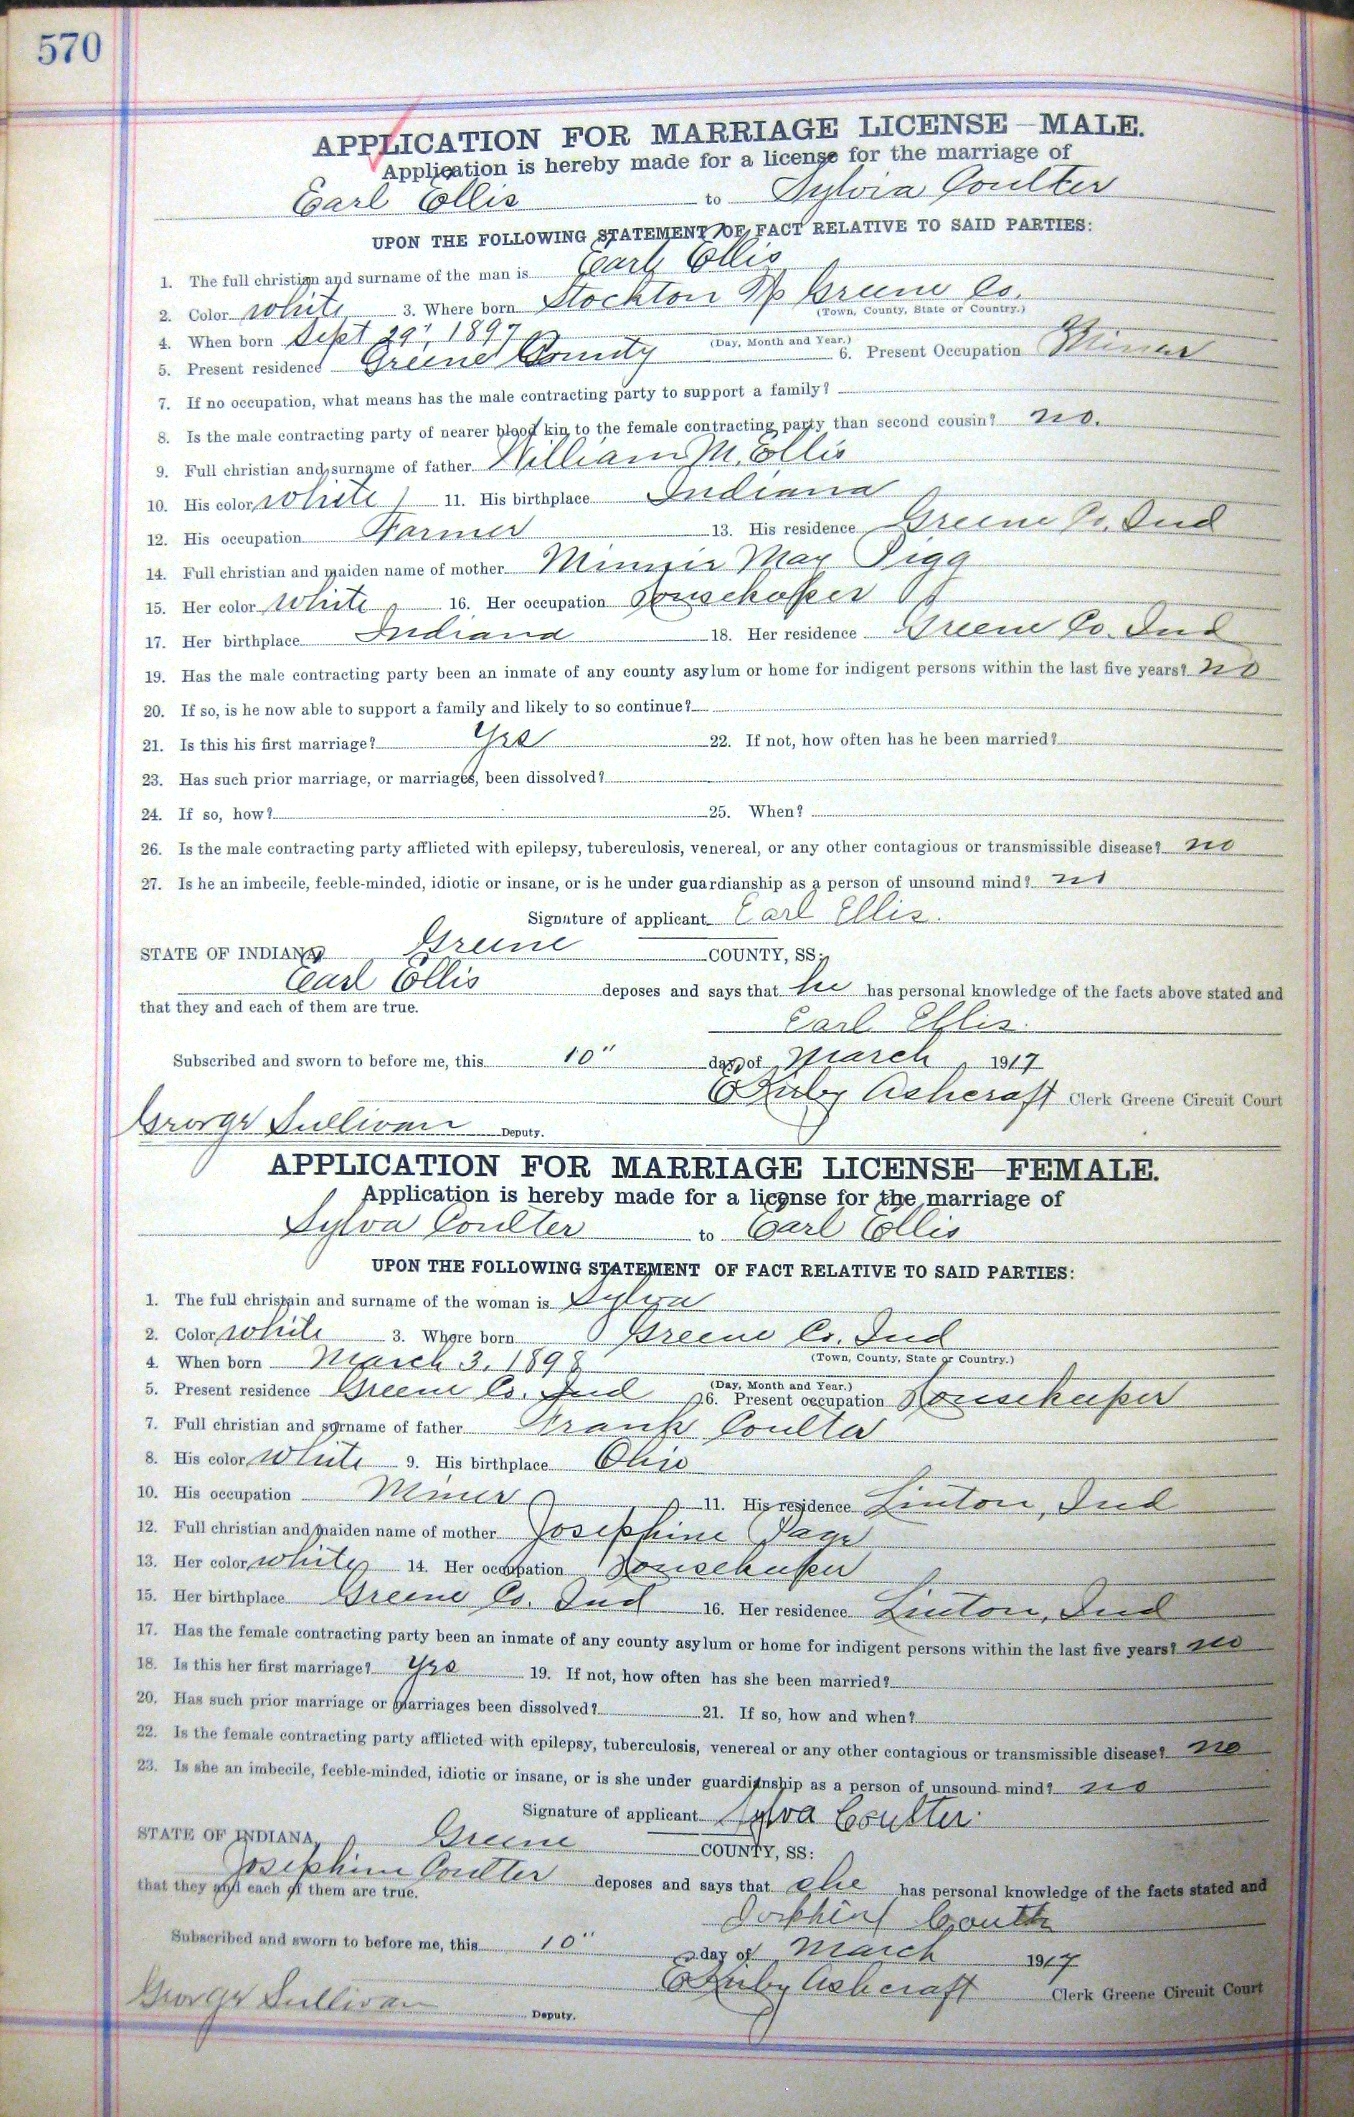 570
APPLICATION FOR MARRIAGE LICENSE—MALE.
Application is hereby made for a license for the marriage of
Earl Ellis to Sylvia Coulter
UPON THE FOLLOWING STATEMENT OF FACT RELATIVE TO SAID PARTIES:
1. The full christian and surname of the man is Earl Ellis
2. Color white 3. Where born Stockton Tp Greene Co.
(Town, County, State or Country.)
4. When born Sept 29", 1897
(Day, Month and Year.)
5. Present residence Greene County 6. Present Occupation Miner
7. If no occupation, what means has the male contracting party to support a family?
8. Is the male contracting party of nearer blood kin to the female contracting party than second cousin? no.
9. Full christian and surname of father William M. Ellis
10. His color white 11. His birthplace Indiana
12. His occupation Farmer 13. His residence Greene Co. Ind
14. Full christian and maiden name of mother Minnie May Pigg
15. Her color white 16. Her occupation Housekeeper
17. Her birthplace Indiana 18. Her residence Greene Co. Ind
19. Has the male contracting party been an inmate of any county asylum or home for indigent persons within the last five years? no
20. If so, is he now able to support a family and likely to so continue?
21. Is this his first marriage? Yes 22. If not, how often has he been married?
23. Has such prior marriage, or marriages, been dissolved?
24. If so, how? 25. When?
26. Is the male contracting party afflicted with epilepsy, tuberculosis, venereal, or any other contagious or transmissible disease? no
27. Is he an imbecile, feeble-minded, idiotic or insane, or is he under guardianship as a person of unsound mind? no
Signature of applicant Earl Ellis.
STATE OF INDIANA, Greene COUNTY, SS:
Earl Ellis deposes and says that he has personal knowledge of the facts above stated and
that they and each of them are true.
Earl Ellis.
Subscribed and sworn to before me, this 10" day of March 1917
E Kirby Ashcraft Clerk Greene Circuit Court
George Sullivan Deputy.
APPLICATION FOR MARRIAGE LICENSE—FEMALE.
Application is hereby made for a license for the marriage of
Sylva Coulter to Earl Ellis
UPON THE FOLLOWING STATEMENT OF FACT RELATIVE TO SAID PARTIES:
1. The full christain and surname of the woman is Sylva
2. Color white 3. Where born Greene Co. Ind
(Town, County, State or Country.)
4. When born March 3, 1898
(Day, Month and Year.)
5. Present residence Greene Co. Ind 6. Present occupation Housekeeper
7. Full christian and surname of father Frank Coulter
8. His color white 9. His birthplace Ohio
10. His occupation Miner 11. His residence Linton, Ind
12. Full christian and maiden name of mother Josephine Page
13. Her color white 14. Her occupation Housekeeper
15. Her birthplace Greene Co. Ind 16. Her residence Linton, Ind
17. Has the female contracting party been an inmate of any county asylum or home for indigent persons within the last five years? no
18. Is this her first marriage? Yes 19. If not, how often has she been married?
20. Has such prior marriage or marriages been dissolved? 21. If so, how and when?
22. Is the female contracting party afflicted with epilepsy, tuberculosis, venereal or any other contagious or transmissible disease? no
23. Is she an imbecile, feeble-minded, idiotic or insane, or is she under guardianship as a person of unsound mind? no
Signature of applicant Sylva Coulter.
STATE OF INDIANA, Greene COUNTY, SS:
Josephine Coulter deposes and says that she has personal knowledge of the facts stated and
that they and each of them are true.
Subscribed and sworn to before me, this 10" day of March 1917
E Kirby Ashcraft Clerk Greene Circuit Court
George Sullivan Deputy.